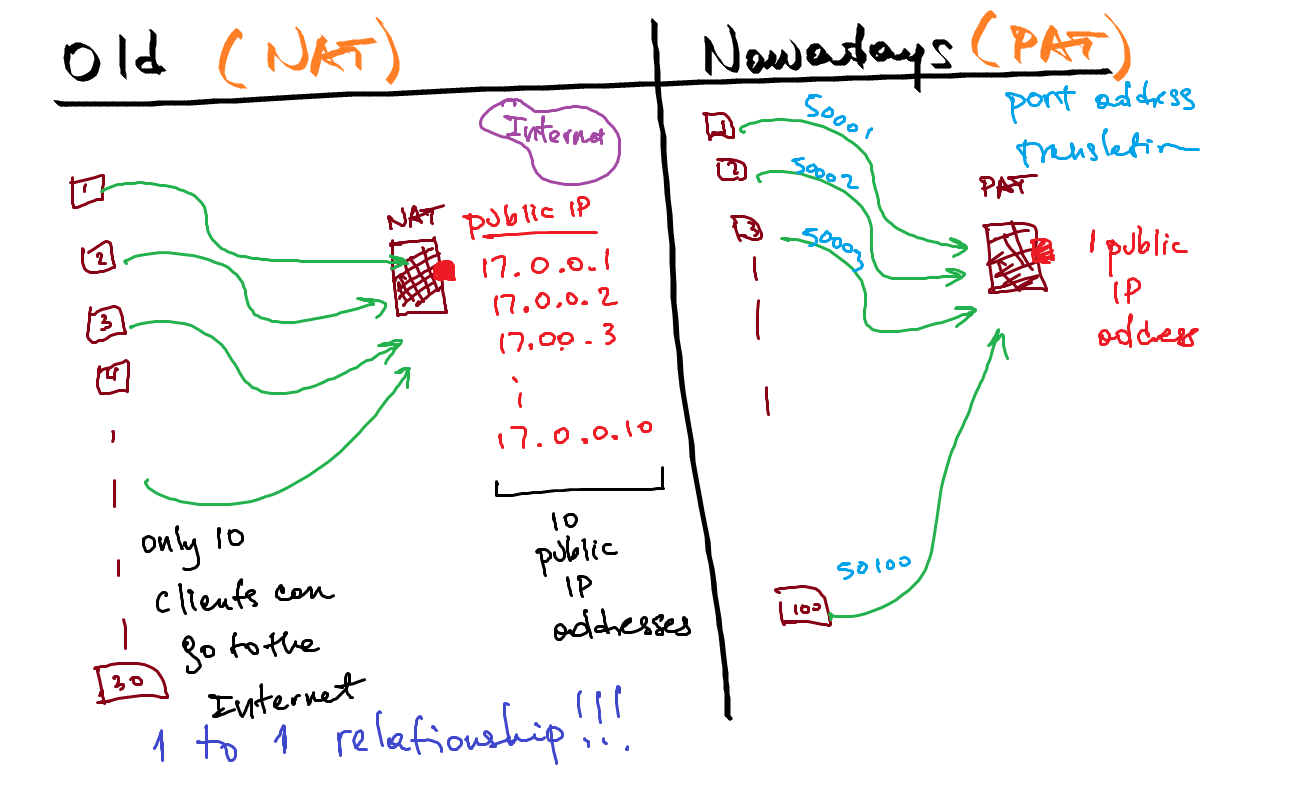 Old (NAT)
Internet
1
2
3
4
30
NAT
public IP
17.0.0.1
17.0.0.2
17.00.3
17.0.0.10
10
public
IP
addresses
only 10
clients can
go to the
Internet
1 to 1 relationship!!!
Nowadays (PAT)
port address
translation
1
2
3
100
50001
50002
50003
50100
PAT
1 public
IP
address